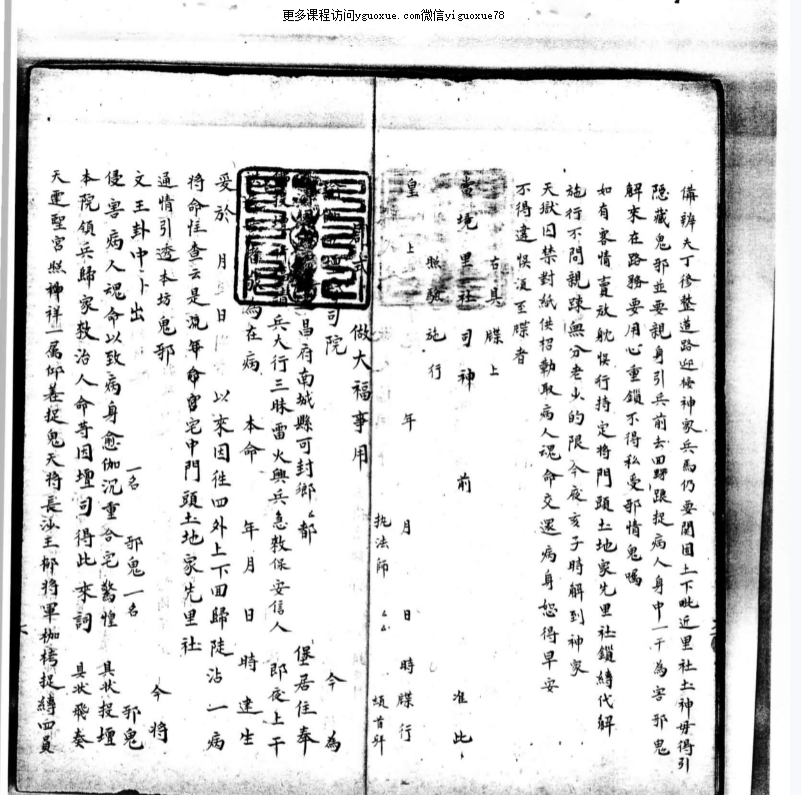 更多课程访问yguoxue.com微信yiguoxue78
備辦夫丁修整道路迎接神家兵馬仍要関囙上下毗近里社土神毋得引
隐藏鬼邪並要親身引兵前去四野跟捉病人身中一干為害邪鬼
解來在路務要用心重鎖不得私受邪情鬼囑
如有客情賣放躭悞行持定將門頭土地家先里社鎖縛代解
施行不問親踈無分老少的限今夜亥子時解到神家
天獄囚禁對紙供招勒取病人魂命交還病身恕得早安
不得違悞須至牒者
右具牒上
當境里社司神 前 准此
照驗施行
皇上 年 月 日 時牒行
执法师 頓首拜
做大福事用
司院 今為
昌府南城縣可封鄉 都 堡居住奉
兵大行三昧雷火興兵急救保安信人 即夜上干
為在病 本命 年 月 日 時建生
爰於 月 日 以來因徃四外上下回歸陡沾一病
將命恠查云是流年命宫宅中門頭土地家先里社
通情引透本坊鬼邪 今將
文王卦中卜出 一名 邪鬼一名 邪鬼
侵害病人魂命以致病身愈加沉重合宅驚惶 具狀投壇
本院領兵歸家救治人命等因壇司得此來詞 具狀飛奏
天運聖宫照 禅祥一属仰差捉鬼天將長沙王 将軍枷栲捉縛四員